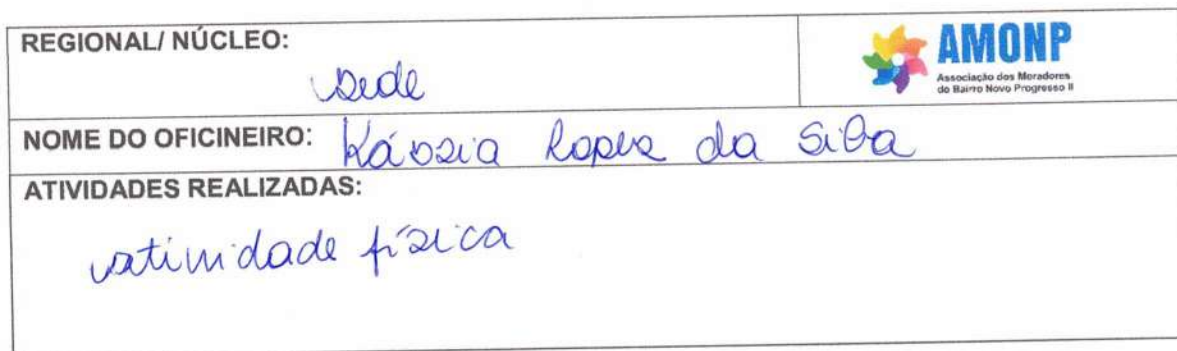 REGIONAL/ NÚCLEO:
sede
AMONP
Associação dos Moradores
do Bairro Novo Progresso II
NOME DO OFICINEIRO: Kássia Lopes da Silva
ATIVIDADES REALIZADAS:
atividade física